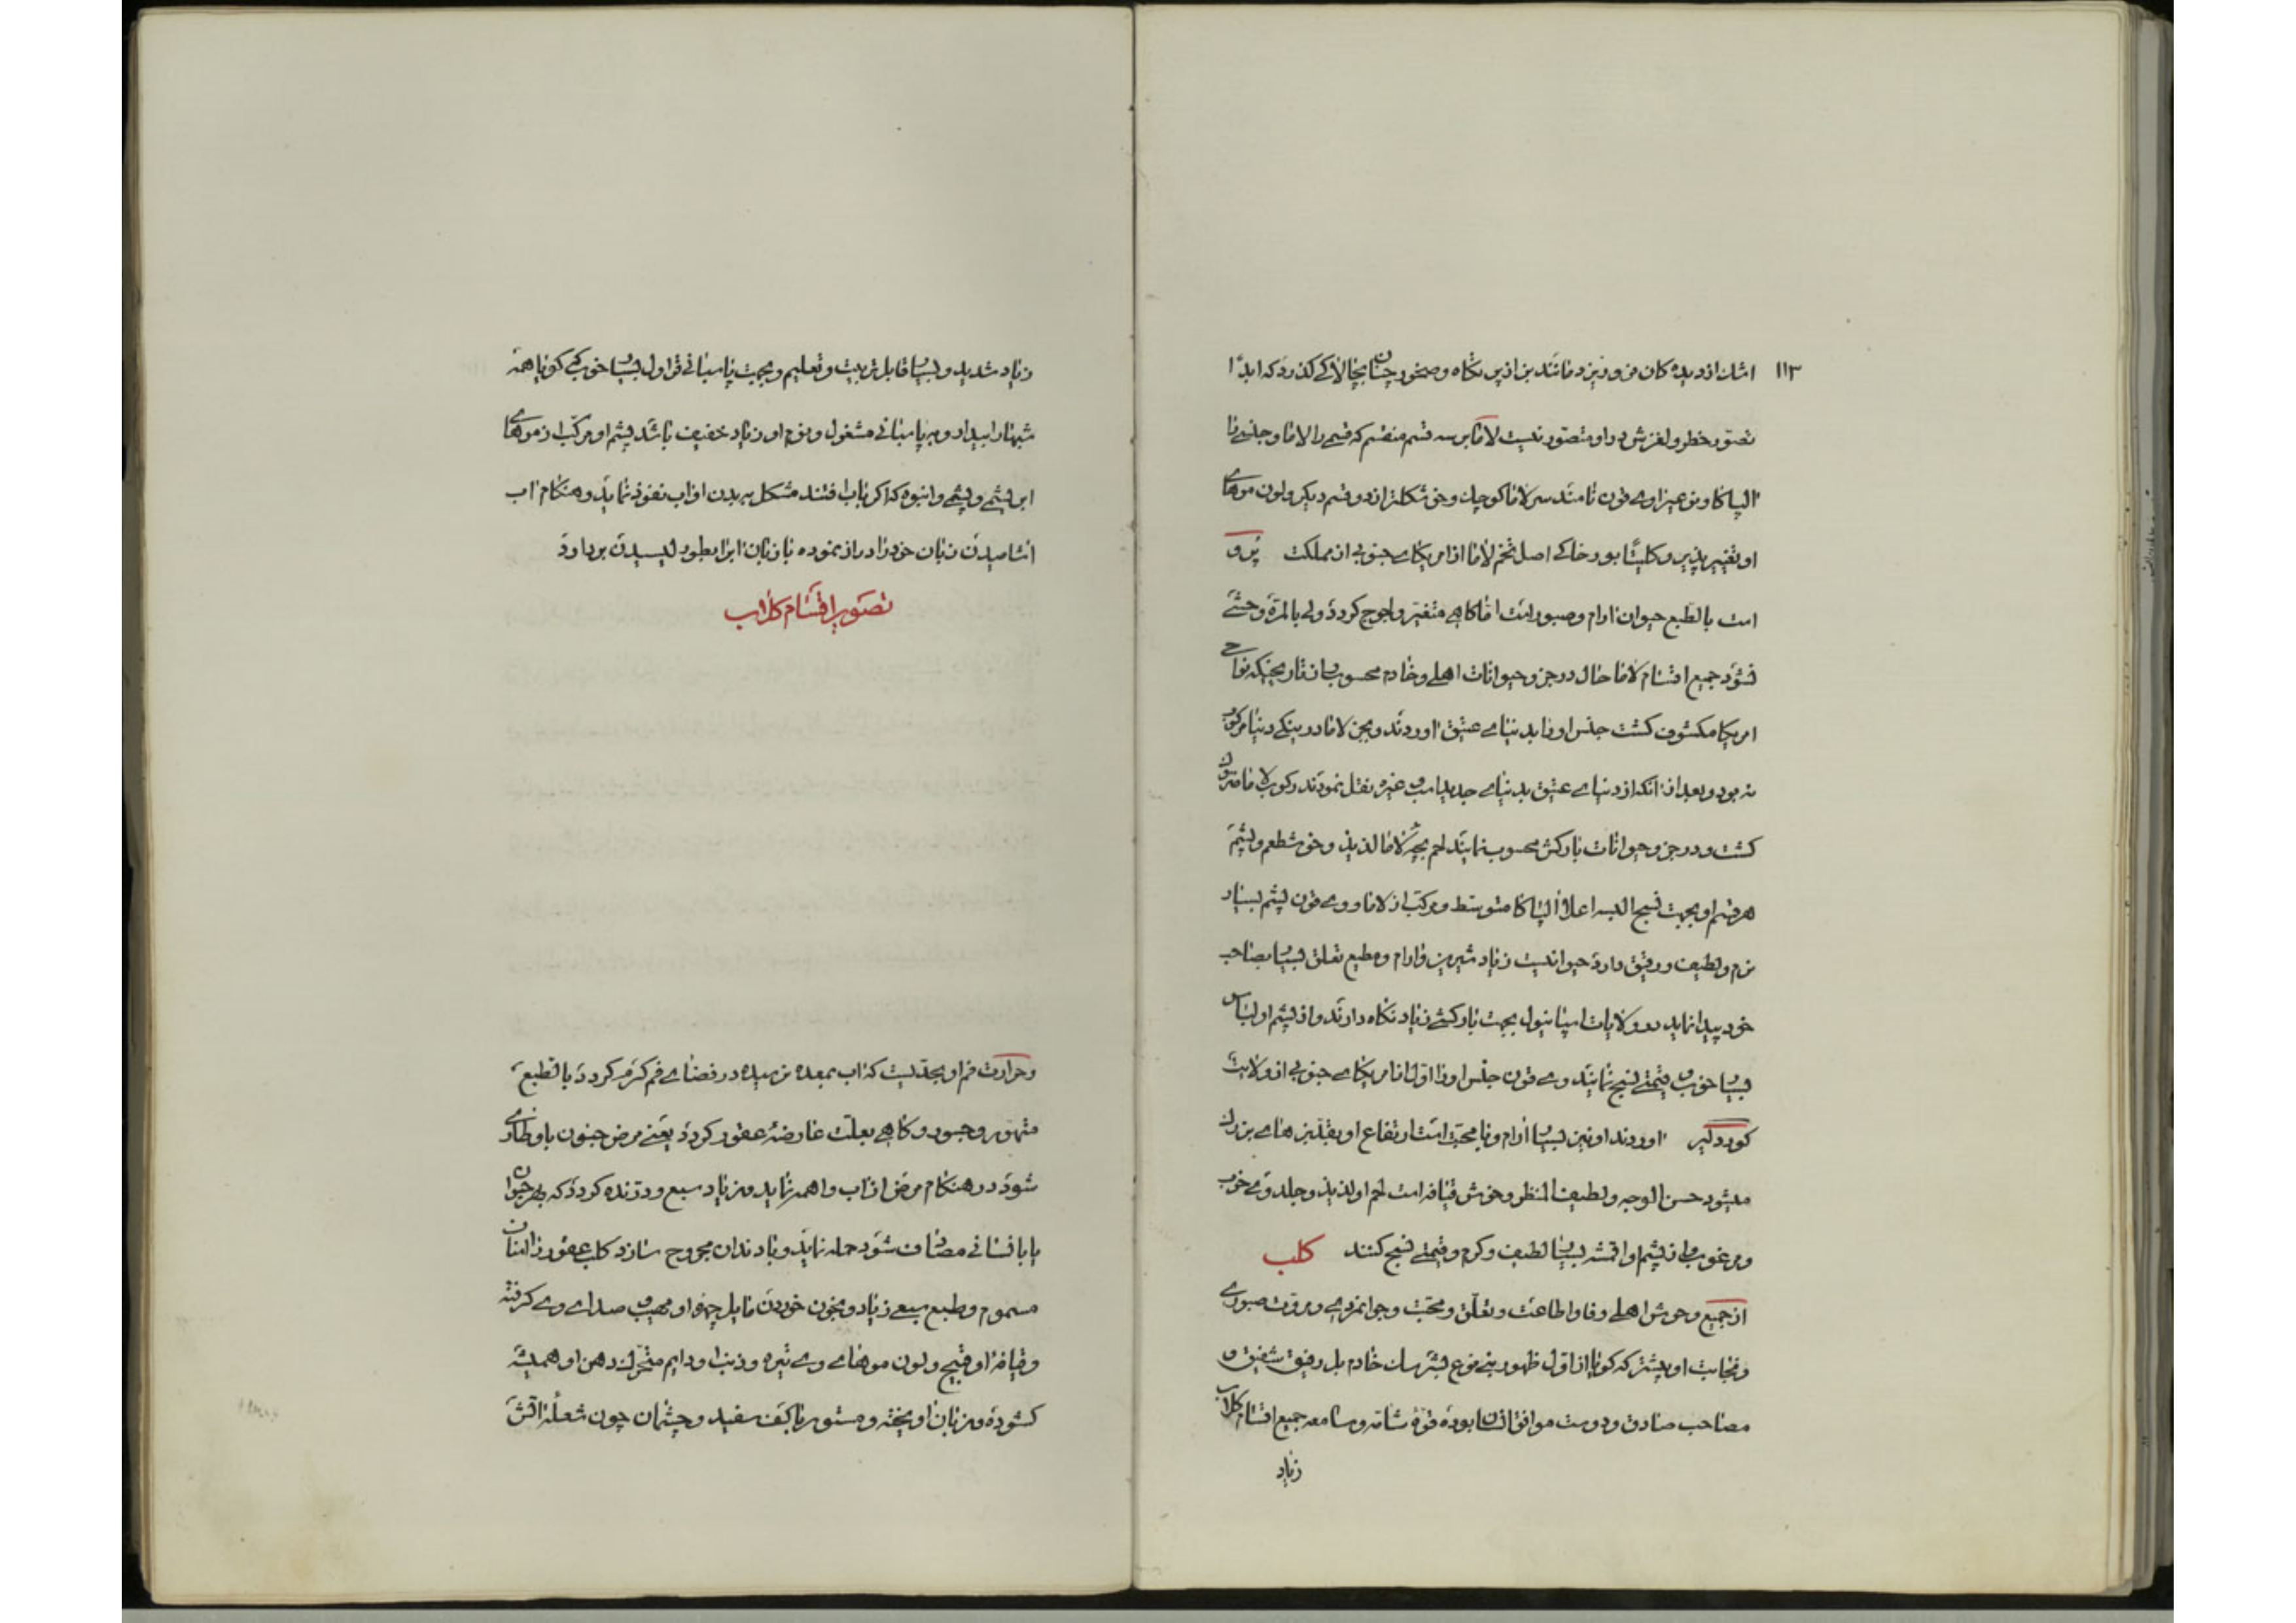 ۱۱۳
اشك از دیده کان فرو ریزد مانند بز از پرتگاه و صخور چنان بچالاکی کذرد که ابدًا
تصوّر خطر و لغزش در او متصوّر نیست لاما بر سه قسم منقسم که قسمی را لاما و جنسی را
الپاکا و نوع میز را وی قون نامند سر لاما کوچك و خوشکلتر از دو قسم دیکر و لون موهای
او تغییر پذیر و کلیتًا بور خاکی اصل تخم لاما از امریکای جنوبی از مملکت پرو
است بالطبع حیوان آرام و صبور است امّا کاهی متغیر و لجوج کردد ولی بالمرّة وحشی
نشود جمیع اقسام لاما حال در جزو حیوانات اهلی و خادم محسوب سازند تاریخیکه نواحی
امریکا مکشوف کشت جنس او را بدنیای عتیق آوردند و بجز لاما در ینکی دنیا مرکوب
نه بود و بعد از آنکه از دنیای عتیق بدنیای جدید اسب و غیره نقل نمودند رکوب لاما متروك
کشت و در جزو حیوانات بارکش محسوب نمایند لحم بچه لاما لذیذ و خوشطعم و پشم
هر قسم او بجهت نسج البسه اعلا الپاکا متوسط و مرکب از لاما و وی قون پشم بسیار
نرم و لطیف و رقیق دارد حیوانیست زیاد شیرین و آرام و مطیع تعلق بسیار بصاحب
خود پیدا نماید در ولایات اسپانیول بجهت بارکشی زیاد نکاه دارند و از پشم او لباس
بسیار خوب و قیمتی نسج نمایند وی قون جنس او را اول از امریکای جنوبی از ولایت
کوردلیر آوردند او نیز بسیار آرام و با محبّت است ارتفاع او بقدر بز های بزرك
میشود حسن الوجه و لطیف المنظر و خوش قیافه است لحم او لذیذ و جلد وی خوب
و مرغوب و از پشم او اقمشه بسیار لطیف و کرم و قیمتی نسج کنند کلب
از جمیع وحوش اهلی وفا و اطاعت و تعلّق و محبّت و جوانمردی و مروّت صبوری
و نجابت او بیشتر که کویا از اوّل ظهور بنی نوع بشر سك خادم بل رفیق شفیق و
مصاحب صادق و دوست موافق انسان بوده قوّهٔ شامّه و سامعه جمیع اقسام کلاب
زیاد
زیاد شدید و بسیار قابل تربیت و تعلیم و بجهت پاسبانی قراول بسیار خوبی که کویا همه
شبها را بیدار و بر پاسبانی مشغول و نوم او زیاد خفیف باشد پشم او مرکّب از موهای
ابریشمی و پشمی و انبوه که اکر بآب افتند مشکل به بدن او آب نفوذ نماید و هنکام آب
آشامیدن زبان خود را دراز نموده با زبان آبرا بطور لیسیدن بر دارد
تصویر اقسام کلاب
و حرارت فم او بحدّیست که آب بمعده نرسیده در فضای فم کرم کردد بالطبع
متهوّر و جسور و کاهی بعلّت عارضهٔ عقور کردد یعنی مرض جنون باو طاری
شود در هنکام مرض از آب واهمه نماید و زیاد سبع و درّنده کردد که بهر حیوان
یا بانسانی مصادف شود حمله نماید و با دندان مجروح سازد کلب عقور را لسان
مسموم و طبع سبعی زیاد و بخون خوردن مایل چهره او مهیب و صدای وی کرفته
و قیافه او قبیح و لون موهای وی تیره و ذنب او دایم متحرّك دهن او همیشه
کشوده و زبان آویخته و مستور با کف سفید و چشمان چون شعلهٔ آتش